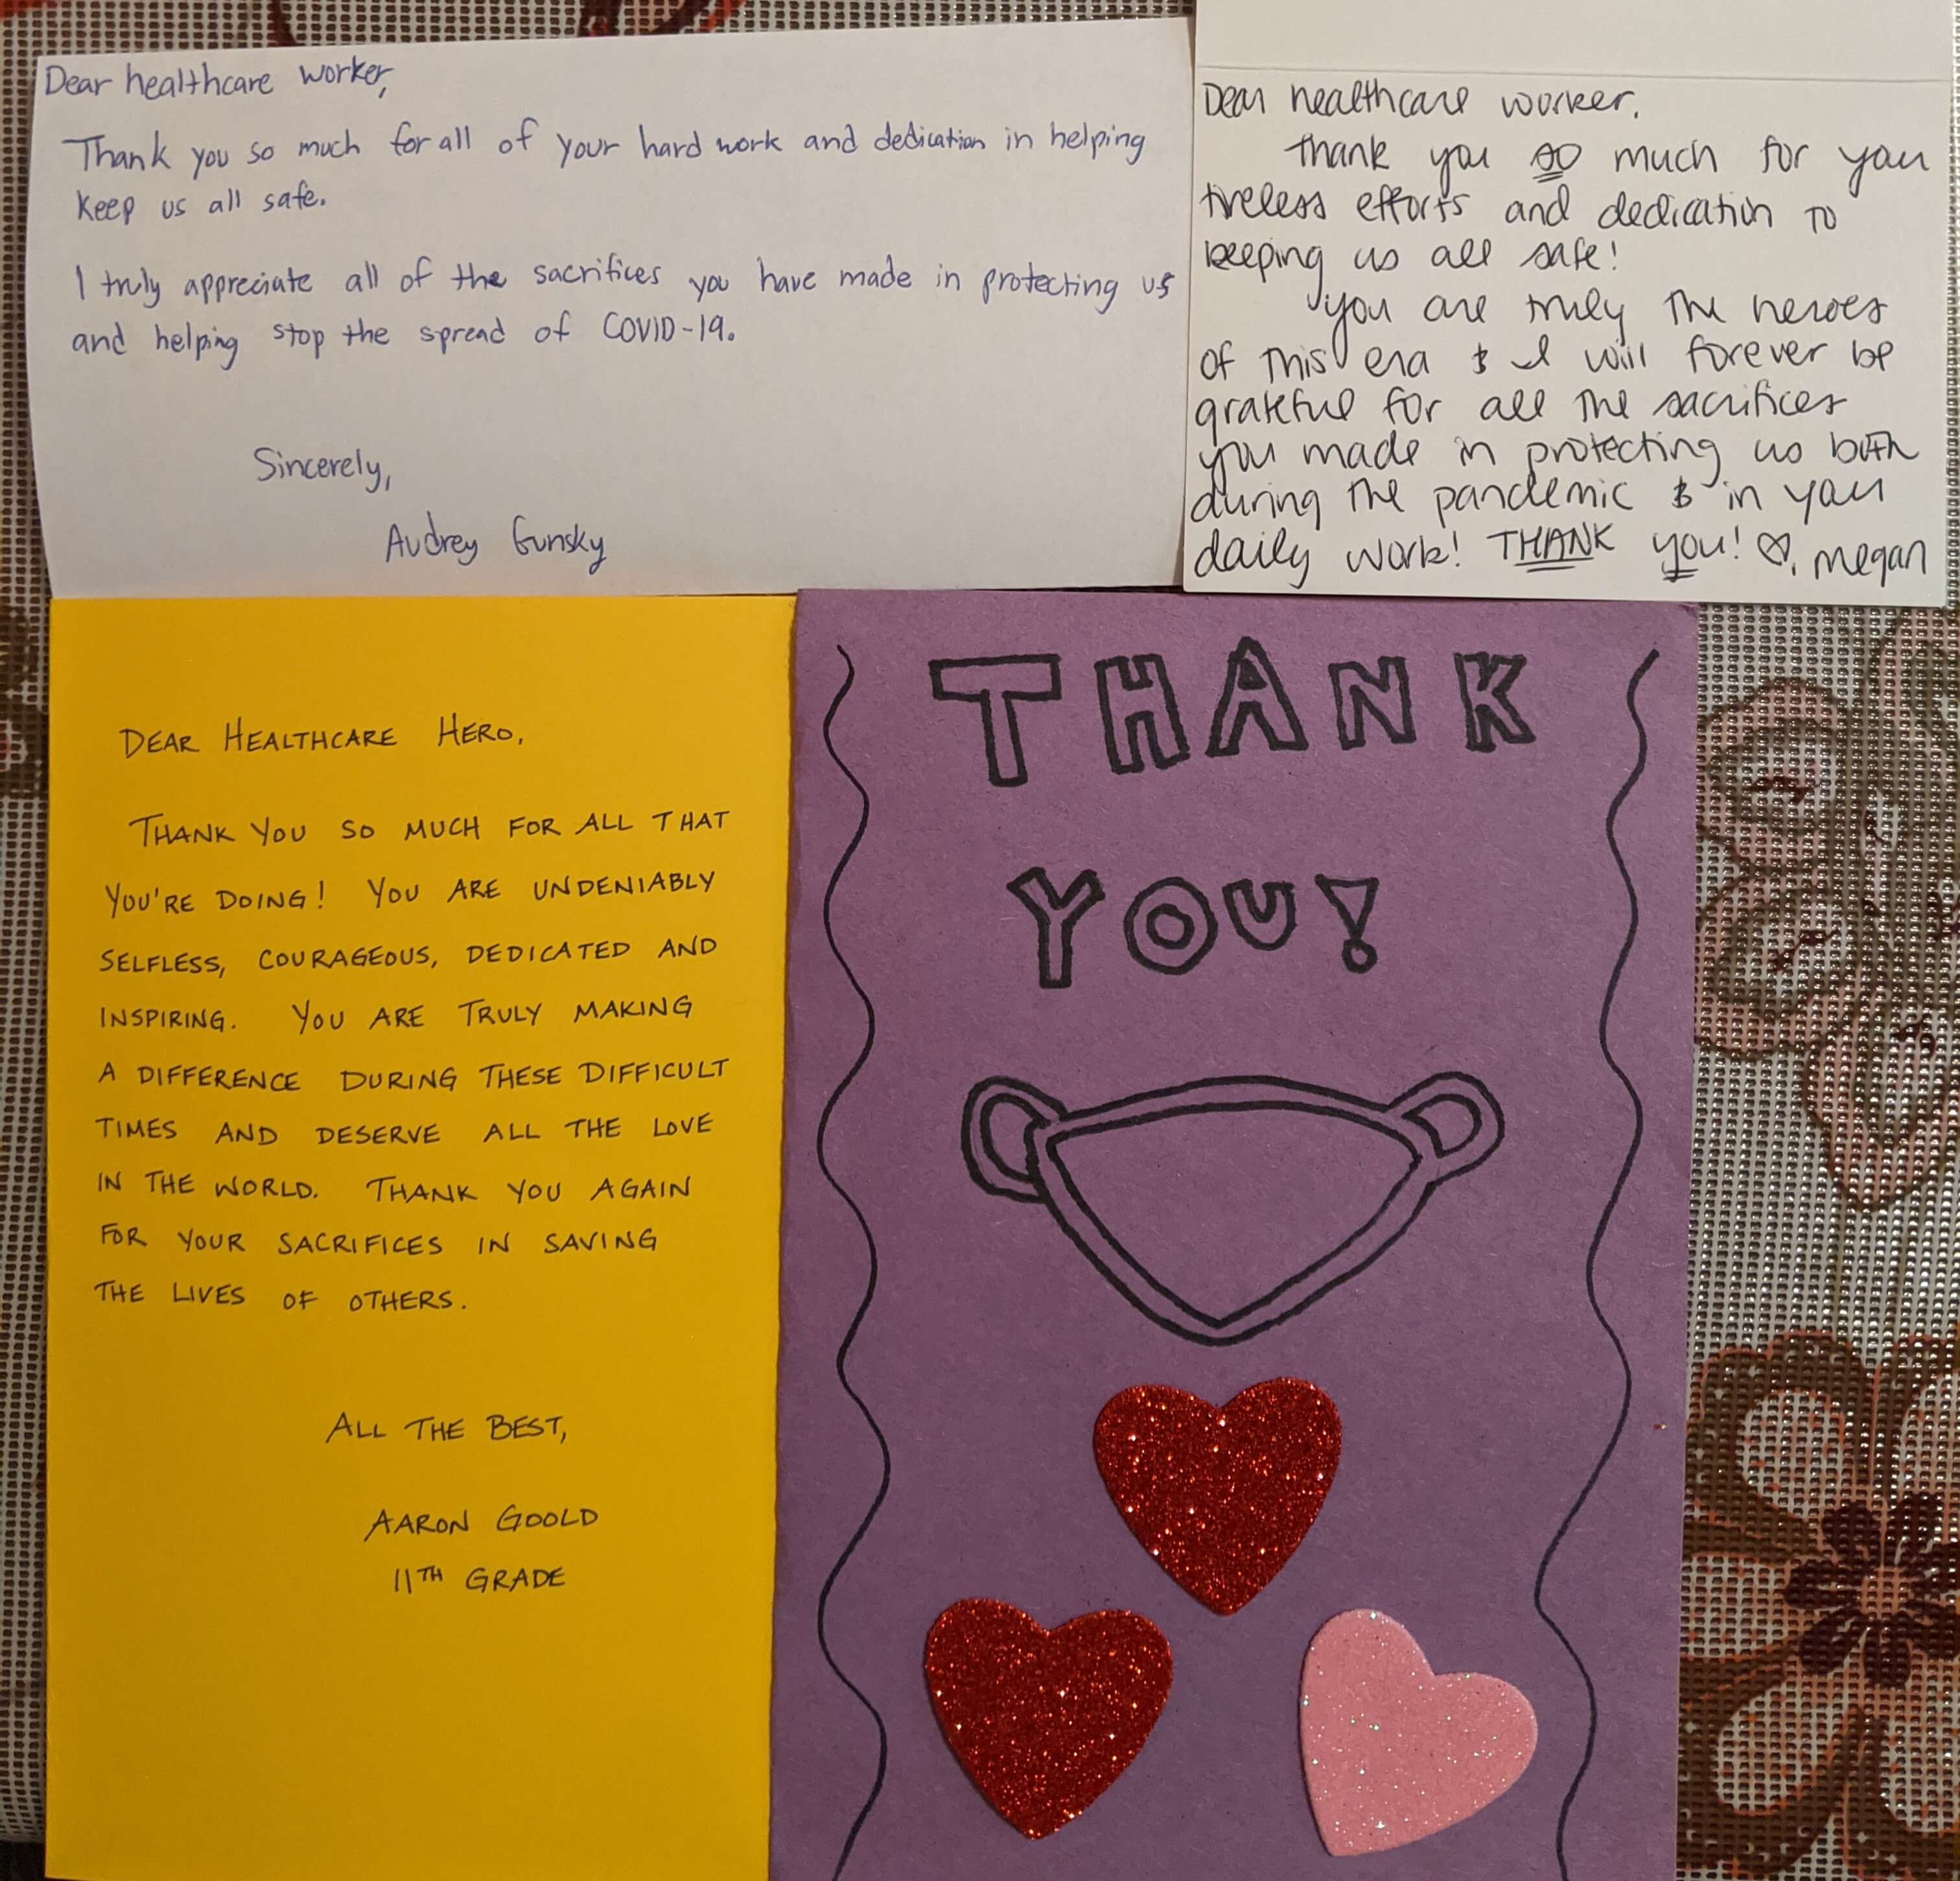 Dear healthcare worker,
Thank you so much for all of your hard work and dedication in helping
keep us all safe.
I truly appreciate all of the sacrifices you have made in protecting us
and helping stop the spread of COVID-19.
Sincerely,
Audrey Gunsky
Dear healthcare worker,
Thank you so much for your
tireless efforts and dedication to
keeping us all safe!
You are truly the heroes
of this era & I will forever be
grateful for all the sacrifices
you made in protecting us both
during the pandemic & in your
daily work! THANK you! ♡, Megan
DEAR HEALTHCARE HERO,
THANK YOU SO MUCH FOR ALL THAT
YOU'RE DOING! YOU ARE UNDENIABLY
SELFLESS, COURAGEOUS, DEDICATED AND
INSPIRING. YOU ARE TRULY MAKING
A DIFFERENCE DURING THESE DIFFICULT
TIMES AND DESERVE ALL THE LOVE
IN THE WORLD. THANK YOU AGAIN
FOR YOUR SACRIFICES IN SAVING
THE LIVES OF OTHERS.
ALL THE BEST,
AARON GOOLD
11TH GRADE
THANK
YOU!